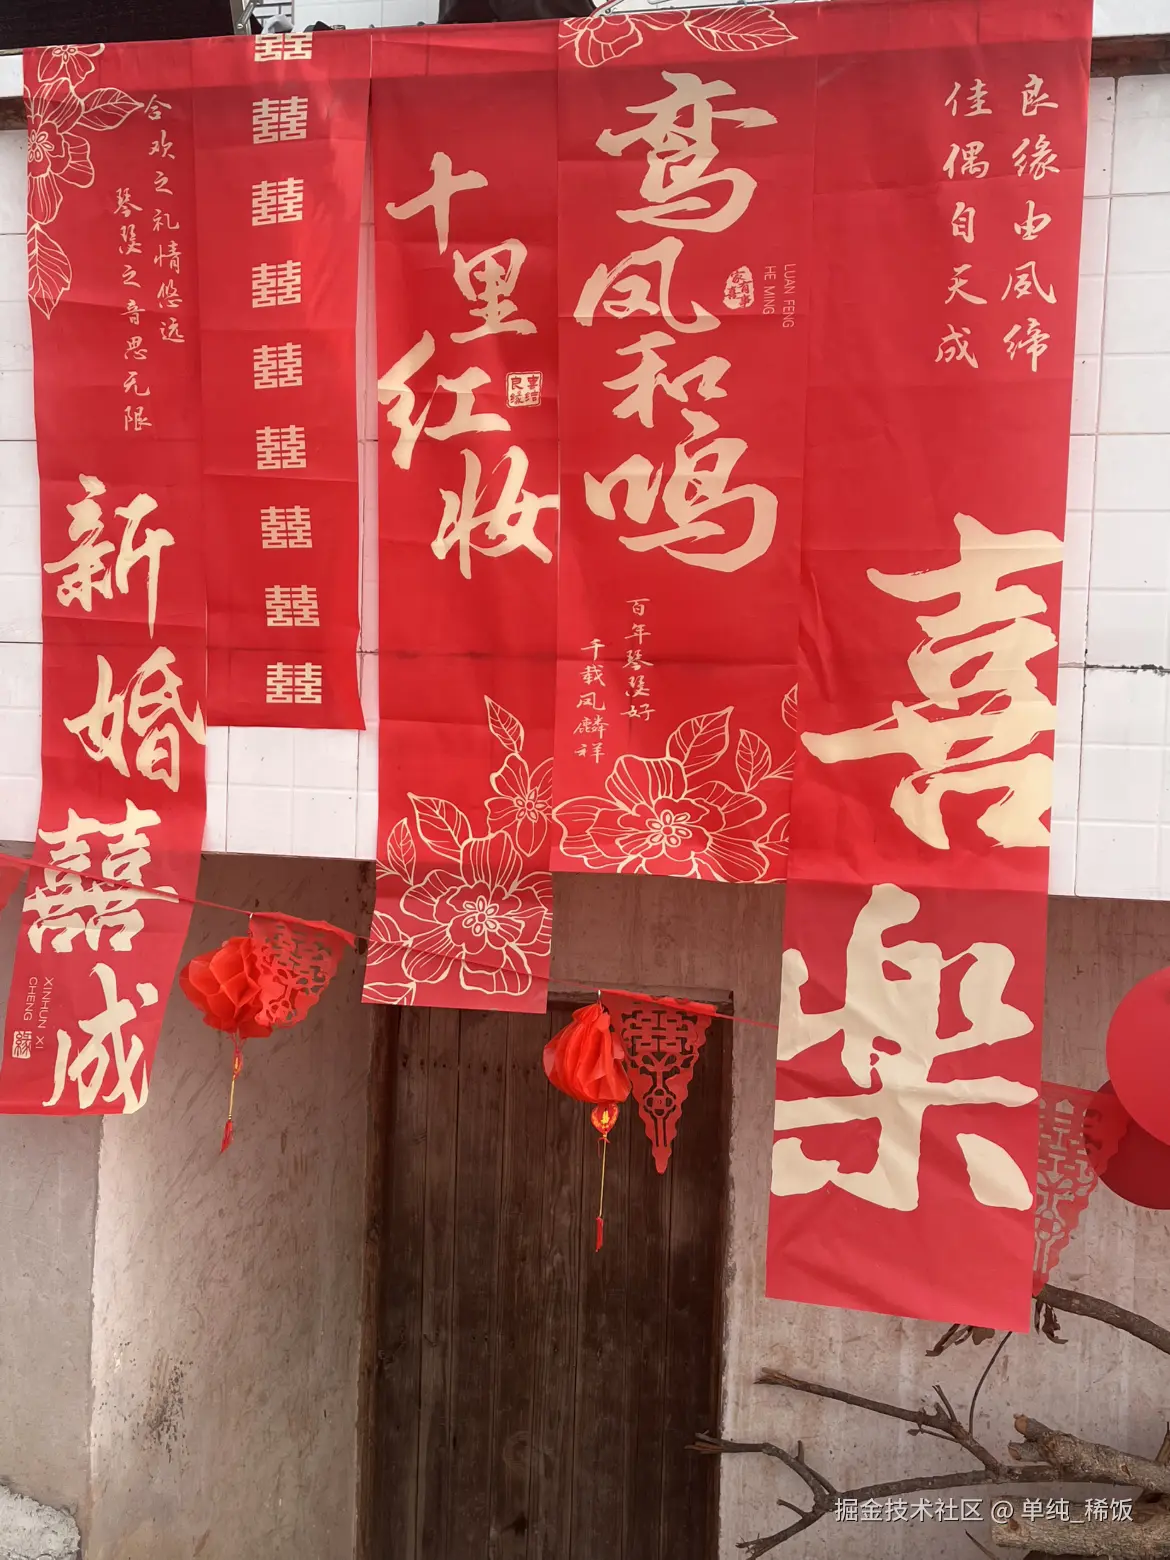 合欢之礼情悠远
琴瑟之音思无限
新婚囍成
XINHUN XI
CHENG
囍囍囍囍囍囍囍囍囍
十里红妆
鸾凤和鸣
LUAN FENG
HE MING
百年琴瑟好
千载凤麟祥
良缘由夙缔
佳偶自天成
喜楽
掘金技术社区 @ 单纯_稀饭